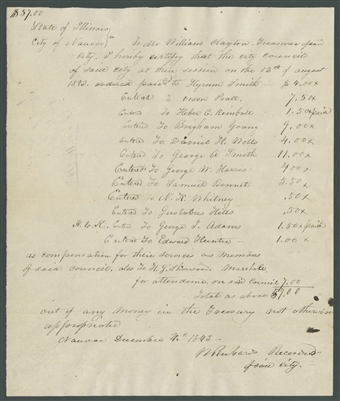 $57.00
State of Illinois
City of Nauvoo} To Mr William Clayton, Treasurer of said
city, I hereby certify that the city council
of said city at their session on the 12th of august
1843. ordered paid to Hyrum Smith — $4.00 x
Entered To Orson Pratt, 7.50 x
Enterd To Heber C. Kimball 1.50 paid
Enterd To Brigham Young 9.00 x
Enterd To Daniel H. Wells 4.00 x
Enterd To George A Smith 11.00 x
Enterd To George W. Harris 4.00 x
Enterd To Samuel Bennet 3.50 x
Enterd To N. K. Whitney .50 x
Enterd To Gustavus Hills .50 x
Enter To George J. Adams 1.50 x paid
Enterd To Edward Hunter — 1.00 x
as compensation for their services as members
of said council, also To H. G. Sherwood Marshal
for attendance on said Council 7.00
Total as above $57.00
out of any money in the Treasury not otherwise
appropriated
Nauvoo December 1843
W Richards Recorder
of said city.